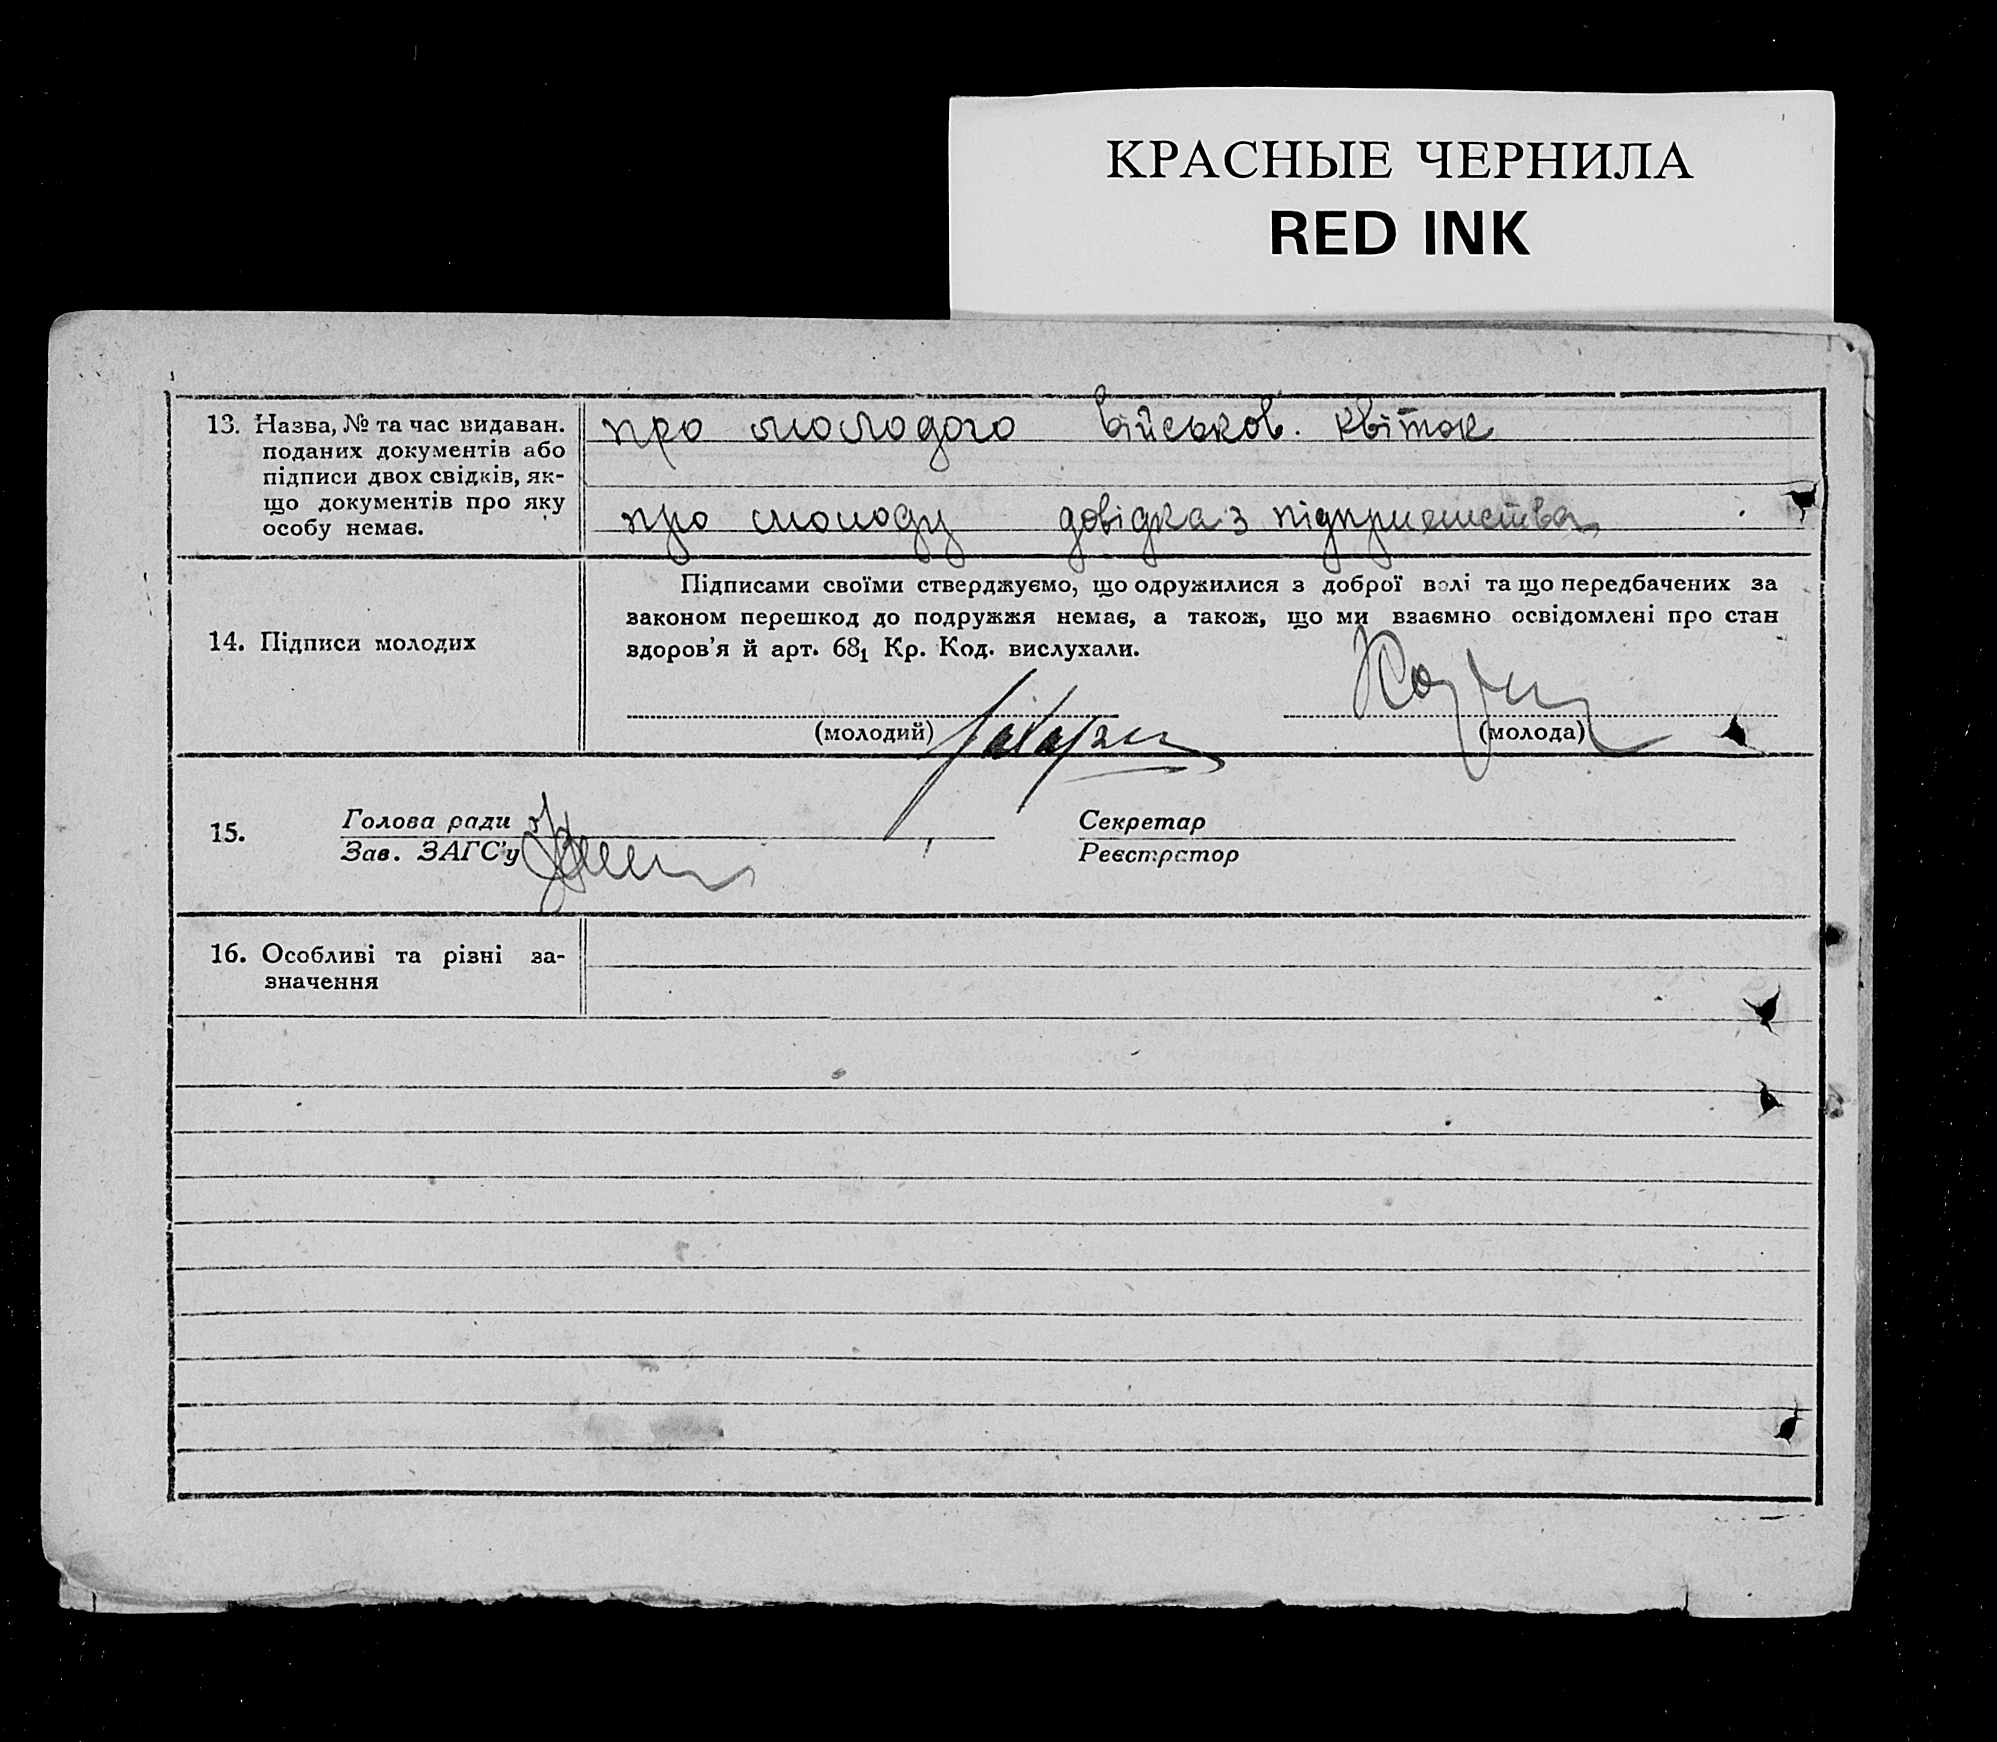 КРАСНЫЕ ЧЕРНИЛА
RED INK
13. Назва, № та час видаван. поданих документів або підписи двох свідків, якщо документів про яку особу немає.
про молодого військов. квіток
про молоду довідка з підприємства
14. Підписи молодих
Підписами своїми стверджуємо, що одружилися з доброї волі та що передбачених за
законом перешкод до подружжя немає, а також, що ми взаємно освідомлені про стан
здоров'я й арт. 68₁ Кр. Код. вислухали.
(молодий)
(молода)
15.
Голова ради
Зав. ЗАГС'у
Секретар
Реєстратор
16. Особливі та різні за-
значення